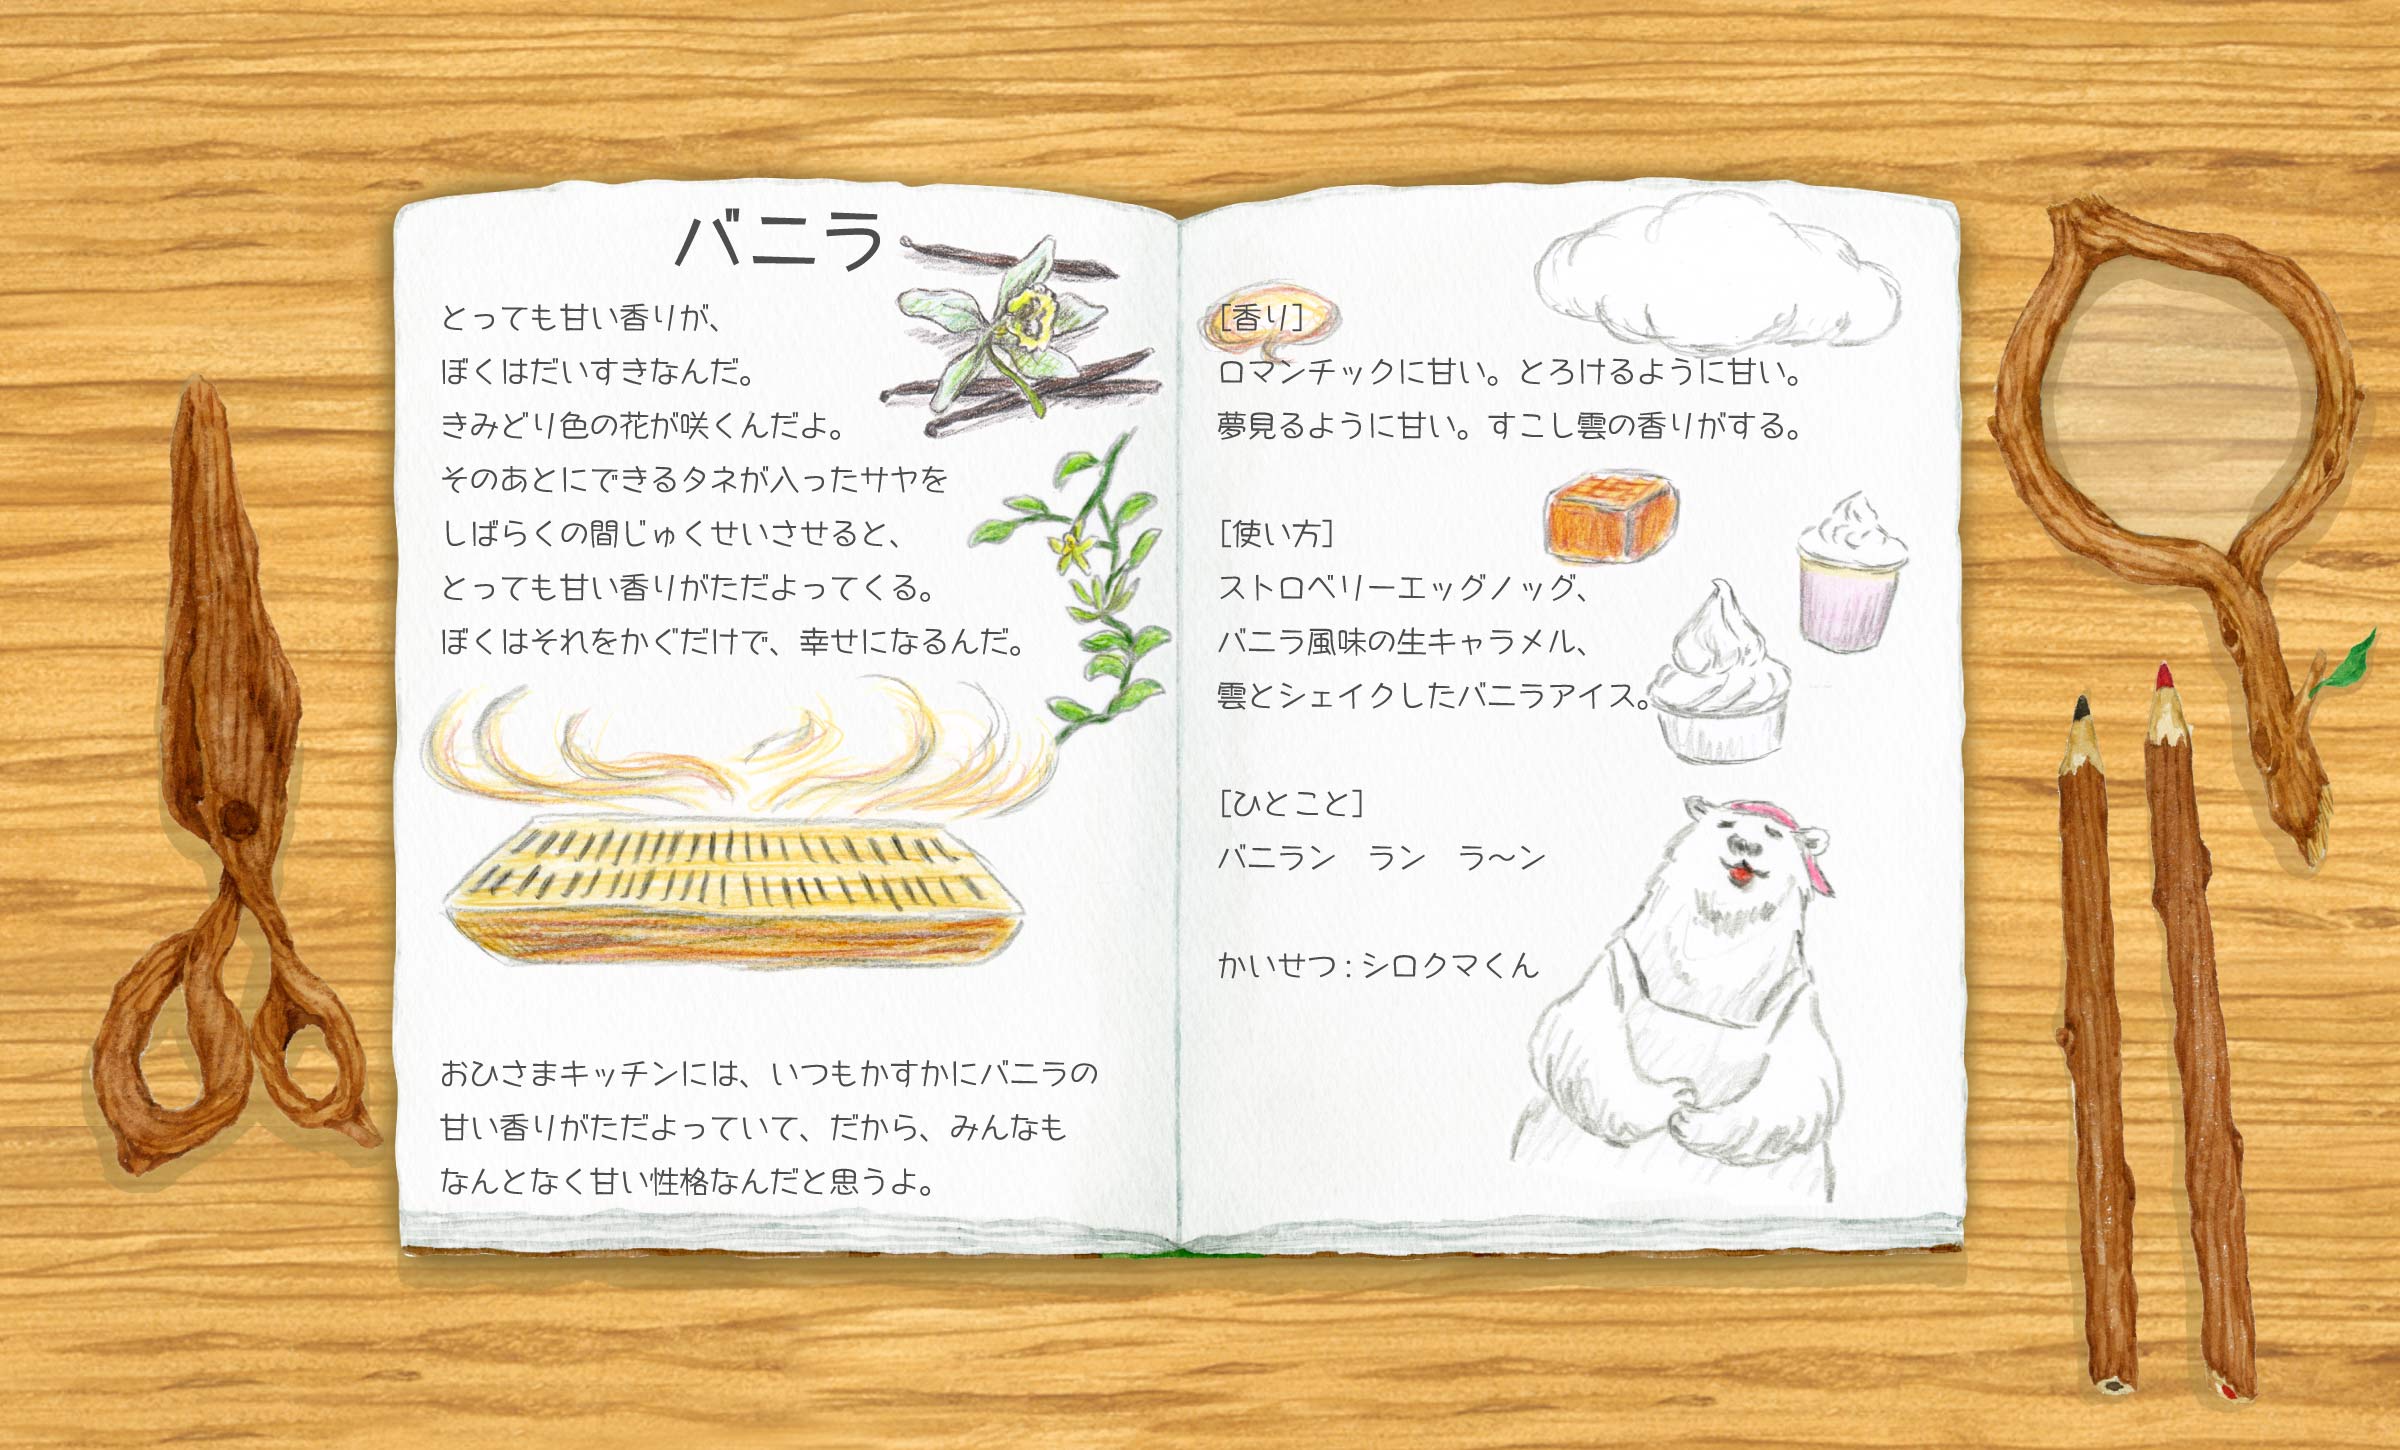 バニラ
とっても甘い香りが、
ぼくはだいすきなんだ。
きみどり色の花が咲くんだよ。
そのあとにできるタネが入ったサヤを
しばらくの間じゅくせいさせると、
とっても甘い香りがただよってくる。
ぼくはそれをかぐだけで、幸せになるんだ。
おひさまキッチンには、いつもかすかにバニラの
甘い香りがただよっていて、だから、みんなも
なんとなく甘い性格なんだと思うよ。
[香り]
ロマンチックに甘い。とろけるように甘い。
夢見るように甘い。すこし雲の香りがする。
[使い方]
ストロベリーエッグノッグ、
バニラ風味の生キャラメル、
雲とシェイクしたバニラアイス。
[ひとこと]
バニラン　ラン　ラ〜ン
かいせつ：シロクマくん